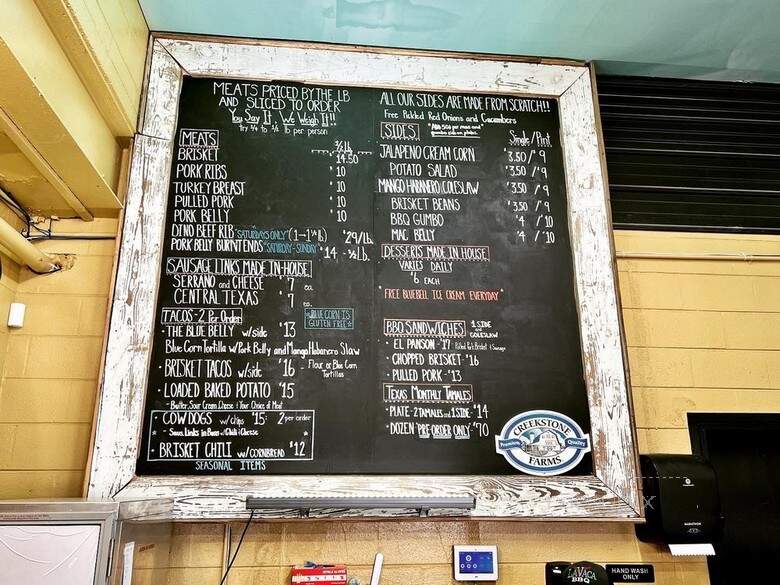 MEATS PRICED BY THE LB
AND SLICED TO ORDER
You Say It, We Weigh It!!
try 1/4 to 1/2 lb per person
MEATS
1/2 lb
BRISKET 14.50
PORK RIBS 10
TURKEY BREAST 10
PULLED PORK 10
PORK BELLY 10
DINO BEEF RIB *SATURDAYS ONLY* (1-1 1/2 lb) $29/lb
PORK BELLY BURNT ENDS *SATURDAY-SUNDAY* $14 - 1/2 lb.
SAUSAGE LINKS MADE IN-HOUSE
SERRANO and CHEESE $7 ea
CENTRAL TEXAS $7 ea.
TACOS - 2 Per Order
*BLUE CORN IS
GLUTEN FREE*
• THE BLUE BELLY w/side $13
Blue Corn Tortilla w/Pork Belly and Mango Habanero Slaw
• BRISKET TACOS w/side $16 - Flour or Blue Corn
Tortillas
• LOADED BAKED POTATO $15
- Butter, Sour Cream, Cheese & Your Choice of Meat
• COW DOGS w/chips $15 2 per order
- Saus. Links in Buns w/Chili & Cheese
• BRISKET CHILI w/CORNBREAD $12
SEASONAL ITEMS
ALL OUR SIDES ARE MADE FROM SCRATCH!!
Free Pickled Red Onions and Cucumbers
SIDES
Single/Pint
JALAPENO CREAM CORN $3.50/$9
POTATO SALAD $3.50/$9
MANGO HABANERO COLESLAW $3.50/$9
BRISKET BEANS $3.50/$9
BBQ GUMBO $4/$10
MAC BELLY $4/$10
DESSERTS MADE IN HOUSE
VARIES DAILY
$6 EACH
*FREE BLUEBELL ICE CREAM EVERYDAY*
BBQ SANDWICHES 1 SIDE
and
COLESLAW
• EL PANSON - $17 Pulled Pork, Brisket & Sausage
• CHOPPED BRISKET - $16
• PULLED PORK - $13
TEXAS MONTHLY TAMALES
• PLATE - 2 TAMALES and 1 SIDE - $14
• DOZEN PRE ORDER ONLY $70
CREEKSTONE
Premium Quality
FARMS
LAVACA
BBQ
HAND WASH
ONLY